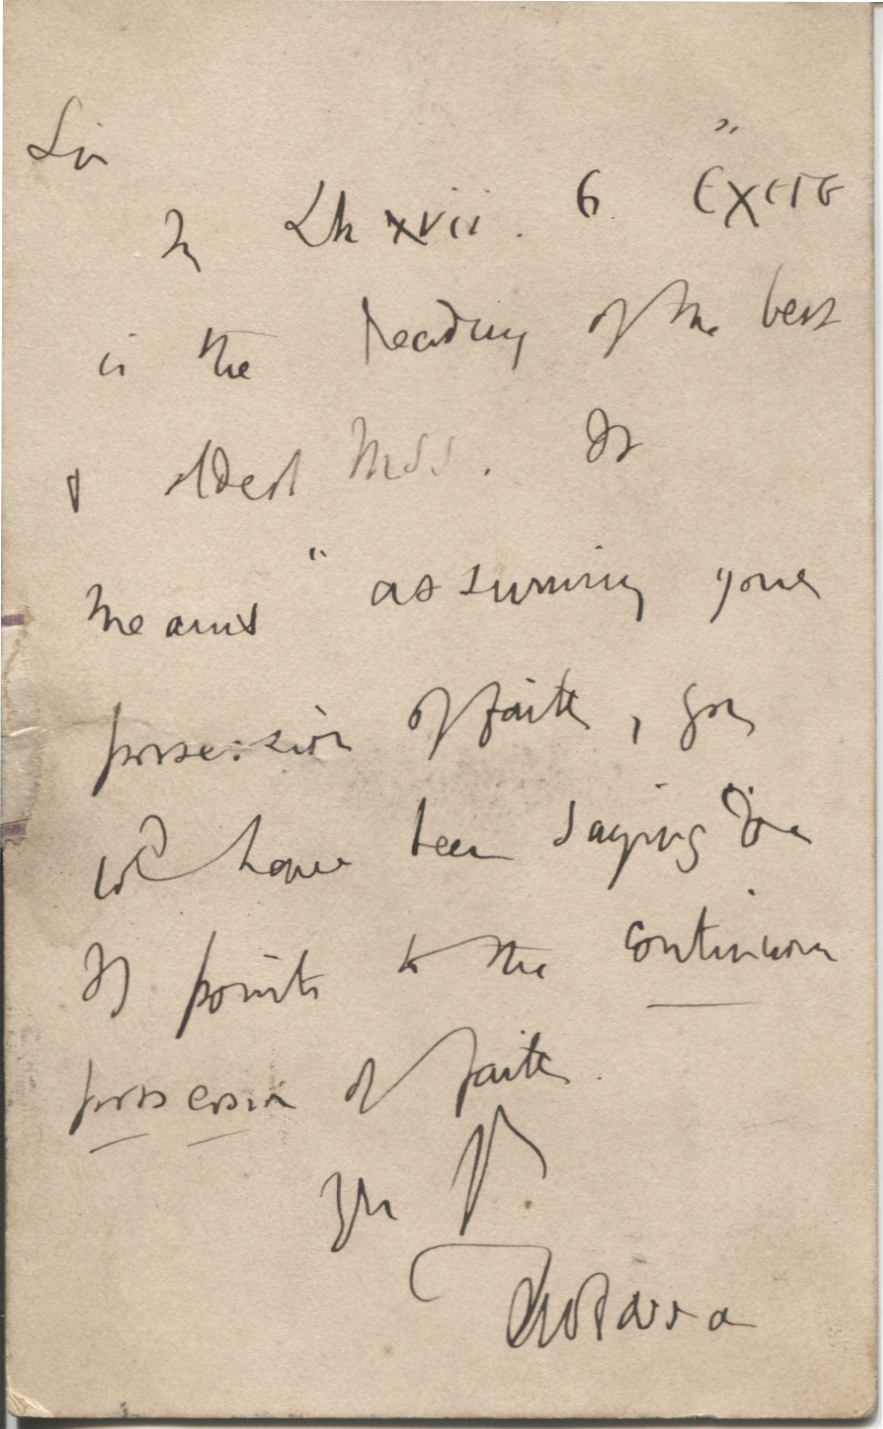 Sir
In Lk xvii. 6 ἔχετε
is the reading of the best
& oldest MSS. It
means "assuming your
possession of faith, you
wd have been saying &c
It points to the continuous
possession of faith.
Yrs